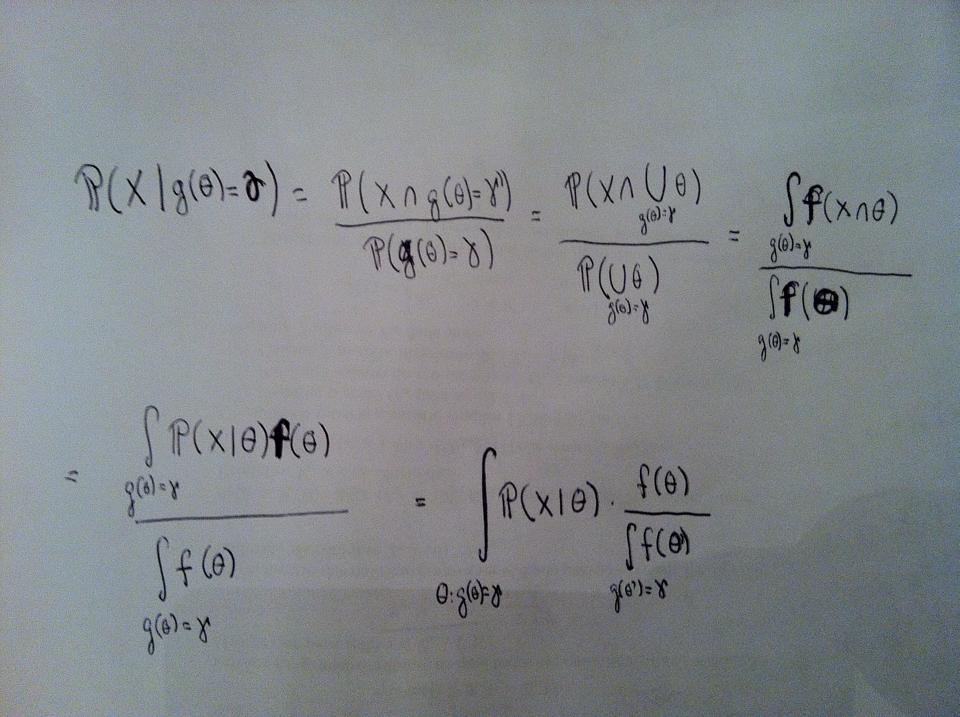 ℙ(X | g(θ)=γ) = ℙ(X ∩ g(θ)=γ) / ℙ(g(θ)=γ) = ℙ(X ∩ ⋃_{g(θ)=γ} θ) / ℙ(⋃_{g(θ)=γ} θ) = ∫_{g(θ)=γ} f(X∩θ) / ∫_{g(θ)=γ} f(θ)
= ∫_{g(θ)=γ} ℙ(X|θ)f(θ) / ∫_{g(θ)=γ} f(θ) = ∫_{θ:g(θ)=γ} ℙ(X|θ) · f(θ) / ∫_{g(θ')=γ} f(θ)